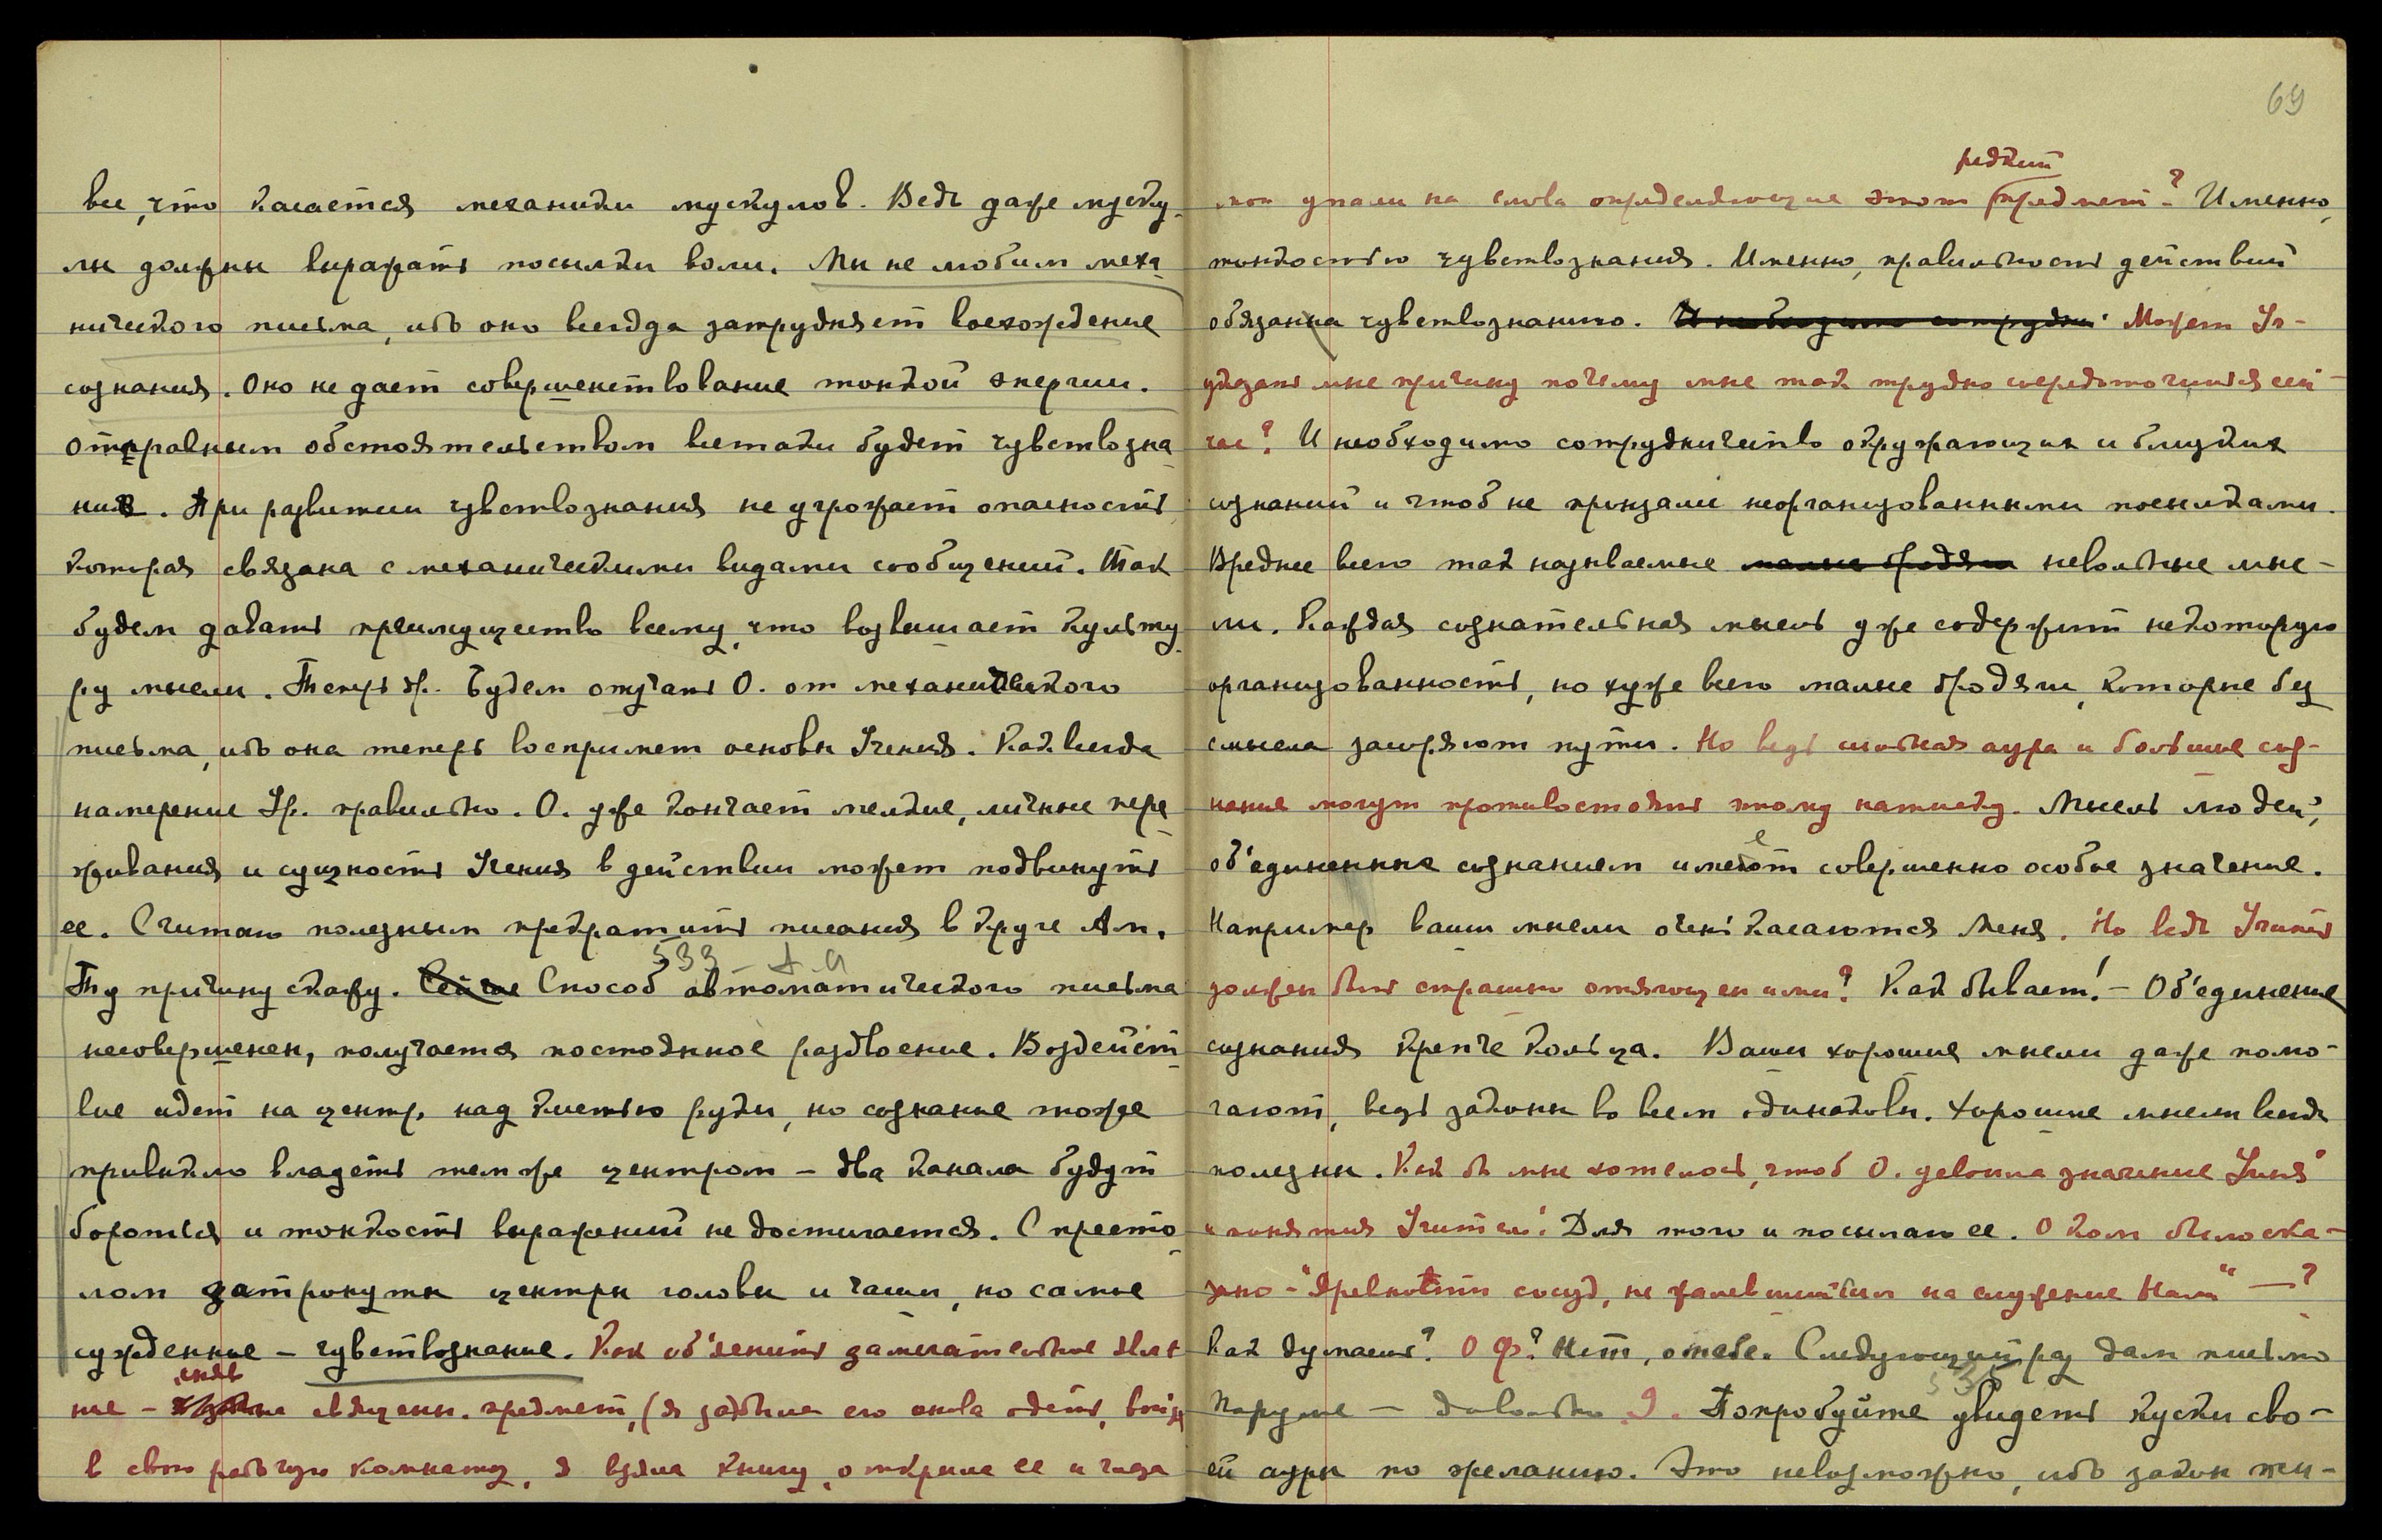 все, что касается механики мускулов. Ведь даже муску-
лы должны выражать посылки воли. Мы не любим меха-
нического письма, ибо оно всегда затрудняет восхождение
сознания. Оно не дает совершенствование тонкой энергии.
Отправным обстоятельством всетаки будет чувствозна-
ние. При развитии чувствознания не угрожает опасность,
которая связана с механическими видами сообщений. Так
будем давать преимущество всему, что возвышает культу-
ру мысли. Теперь др. Будем отучать О. от механического
письма, ибо она теперь воспримет основы Учения. Как всегда
намерение Ур. правильно. О. уже кончает мелкие, личные пере-
живания и сущность Учения в действии может подвинуть
ее. Считаю полезным прекратить писания в круге Ам.
533
Ту причину скажу. Сейчас Способ автоматического письма
несовершенен, получается постоянное раздвоение. Воздейст-
вие идет на центр, над кистью руки, но сознание тоже
привыкло владеть тем же центром – два канала будут
бороться и тонкость выражений не достигается. С престо-
лом затронуты центры головы и чаши, но самое
суждение – чувствознание. Как об'яснить замечательное
священ. предмет, (я забыла его снова одеть, войдя
в свою рабочую комнату, я взяла книгу, открыла ее и глаза
69
редкий
мои упали на слова определяющие этот предмет? Именно,
тонкостью чувствознания. Именно, правильность действий
обязана чувствознанию. И необходимо сотрудни. Может Уч-
указать мне причину почему мне так трудно сосредоточиться сей-
час? И необходимо сотрудничество окружающих и близких
сознаний и чтоб не пронзали неорганизованными посылками.
Вреднее всего так называемые малые бродяги невольные мыс-
ли. Каждая сознательная мысль уже содержит некоторую
организованность, но хуже всего малые бродяги, которые без
смысла засоряют пути. Но ведь сильная аура и большие соз-
нания могут противостоять этому натиску. Мысль людей,
об'единенные сознанием имеет совершенно особое значение.
Например ваши мысли очень касаются Меня. Но ведь Учитель
должен быть страшно отягощен ими? Как бывает! – Об'единение
сознания крепче кольца. Ваши хорошие мысли даже помо-
гают, ведь законы во всем одинаковы. Хорошие мысли всегда
полезны. Как бы мне хотелось, чтоб О. усвоила значение Учения
и понятия Учитель! Для того и посылаю ее. О ком было ска-
зано – "Древнейший сосуд, не на служение Нам" — ?
Как думаешь? О Ф.? Нет, о тебе. Следующий раз дам письмо
Поруме – довольно. Попробуйте увидеть куски сво-
ей ауры по желанию. Это невозможно, ибо закон